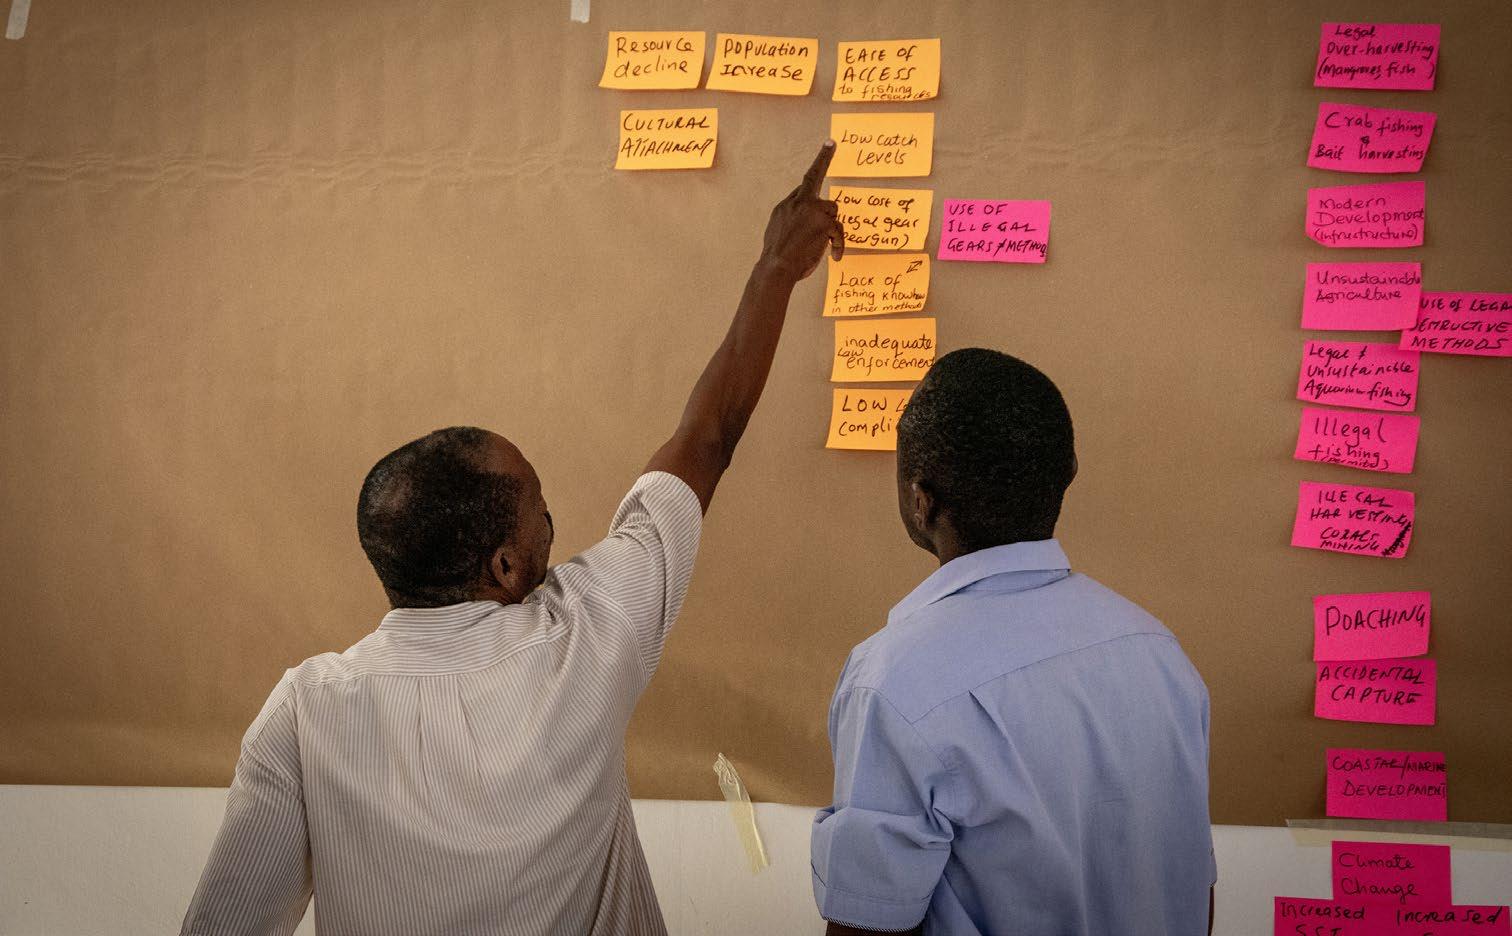 Resource
decline
Population
Increase
EASE OF
ACCESS
to fishing
resources
CULTURAL
ATTACHMENT
Low catch
levels
Low cost of
illegal gear
USE OF
ILLEGAL
GEARS/METHODS
Lack of
fishing knowhow
in other methods
inadequate
Law
enforcement
LOW
Compli
Legal
Over-harvesting
(Mangroves, fish )
Crab fishing
&
Bait harvesting
Modern
Development
(Infrastructure)
Unsustainable
Agriculture
USE OF LEGA
METHODS
Legal &
Unsustainable
Aquarium fishing
Illegal
fishing
ILLEGAL
HARVESTING
CORALS
MINING
POACHING
ACCIDENTAL
CAPTURE
COASTAL/MARINE
DEVELOPMENT
Climate
Change
Increased
SST
Increased